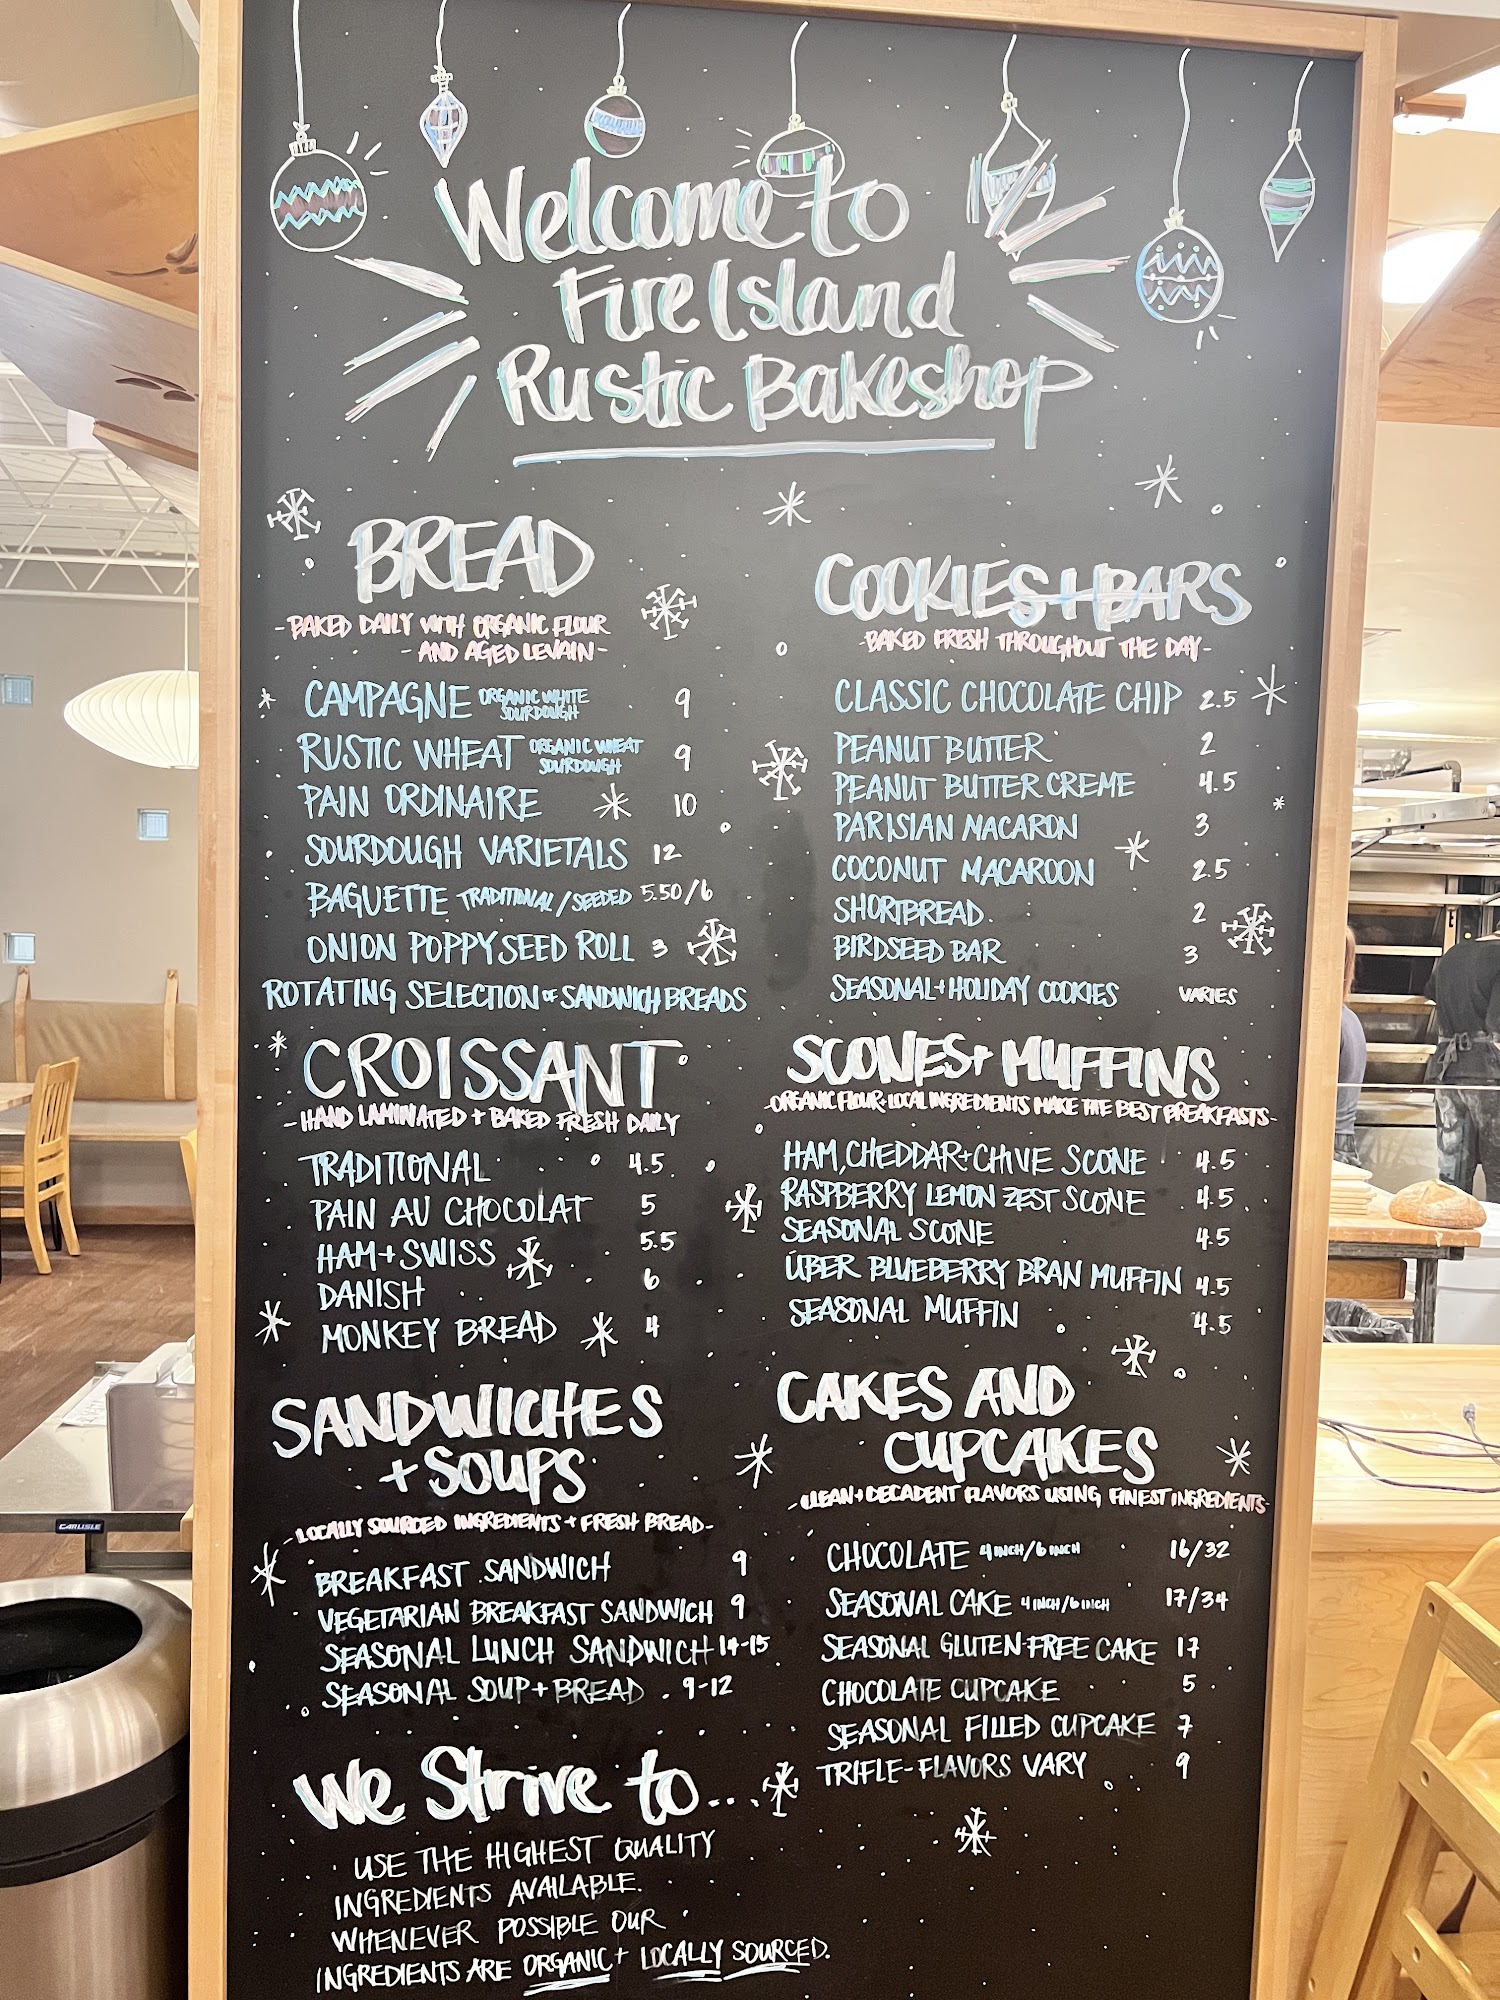 Welcome to
Fire Island
Rustic Bakeshop
BREAD
- BAKED DAILY WITH ORGANIC FLOUR
- AND AGED LEVAIN -
CAMPAGNE ORGANIC WHITE SOURDOUGH 9
RUSTIC WHEAT ORGANIC WHEAT SOURDOUGH 9
PAIN ORDINAIRE 10
SOURDOUGH VARIETALS 12
BAGUETTE TRADITIONAL/SEEDED 5.50/6
ONION POPPYSEED ROLL 3
ROTATING SELECTION OF SANDWICH BREADS
CROISSANT
- HAND LAMINATED + BAKED FRESH DAILY
TRADITIONAL 4.5
PAIN AU CHOCOLAT 5
HAM + SWISS 5.5
DANISH 6
MONKEY BREAD 4
SANDWICHES
+ SOUPS
- LOCALLY SOURCED INGREDIENTS + FRESH BREAD -
BREAKFAST SANDWICH 9
VEGETARIAN BREAKFAST SANDWICH 9
SEASONAL LUNCH SANDWICH 14-15
SEASONAL SOUP + BREAD 9-12
We Strive to...
USE THE HIGHEST QUALITY
INGREDIENTS AVAILABLE.
WHENEVER POSSIBLE OUR
INGREDIENTS ARE ORGANIC + LOCALLY SOURCED.
COOKIES + BARS
- BAKED FRESH THROUGHOUT THE DAY -
CLASSIC CHOCOLATE CHIP 2.5
PEANUT BUTTER 2
PEANUT BUTTER CREME 4.5
PARISIAN MACARON 3
COCONUT MACAROON 2.5
SHORTBREAD 2
BIRDSEED BAR 3
SEASONAL + HOLIDAY COOKIES VARIES
SCONES + MUFFINS
- ORGANIC FLOUR + LOCAL INGREDIENTS MAKE THE BEST BREAKFASTS -
HAM, CHEDDAR + CHIVE SCONE 4.5
RASPBERRY LEMON ZEST SCONE 4.5
SEASONAL SCONE 4.5
ÜBER BLUEBERRY BRAN MUFFIN 4.5
SEASONAL MUFFIN 4.5
CAKES AND
CUPCAKES
- CLEAN + DECADENT FLAVORS USING FINEST INGREDIENTS -
CHOCOLATE 4 INCH/6 INCH 16/32
SEASONAL CAKE 4 INCH/6 INCH 17/34
SEASONAL GLUTEN-FREE CAKE 17
CHOCOLATE CUPCAKE 5
SEASONAL FILLED CUPCAKE 7
TRIFLE - FLAVORS VARY 9
CARLISLE